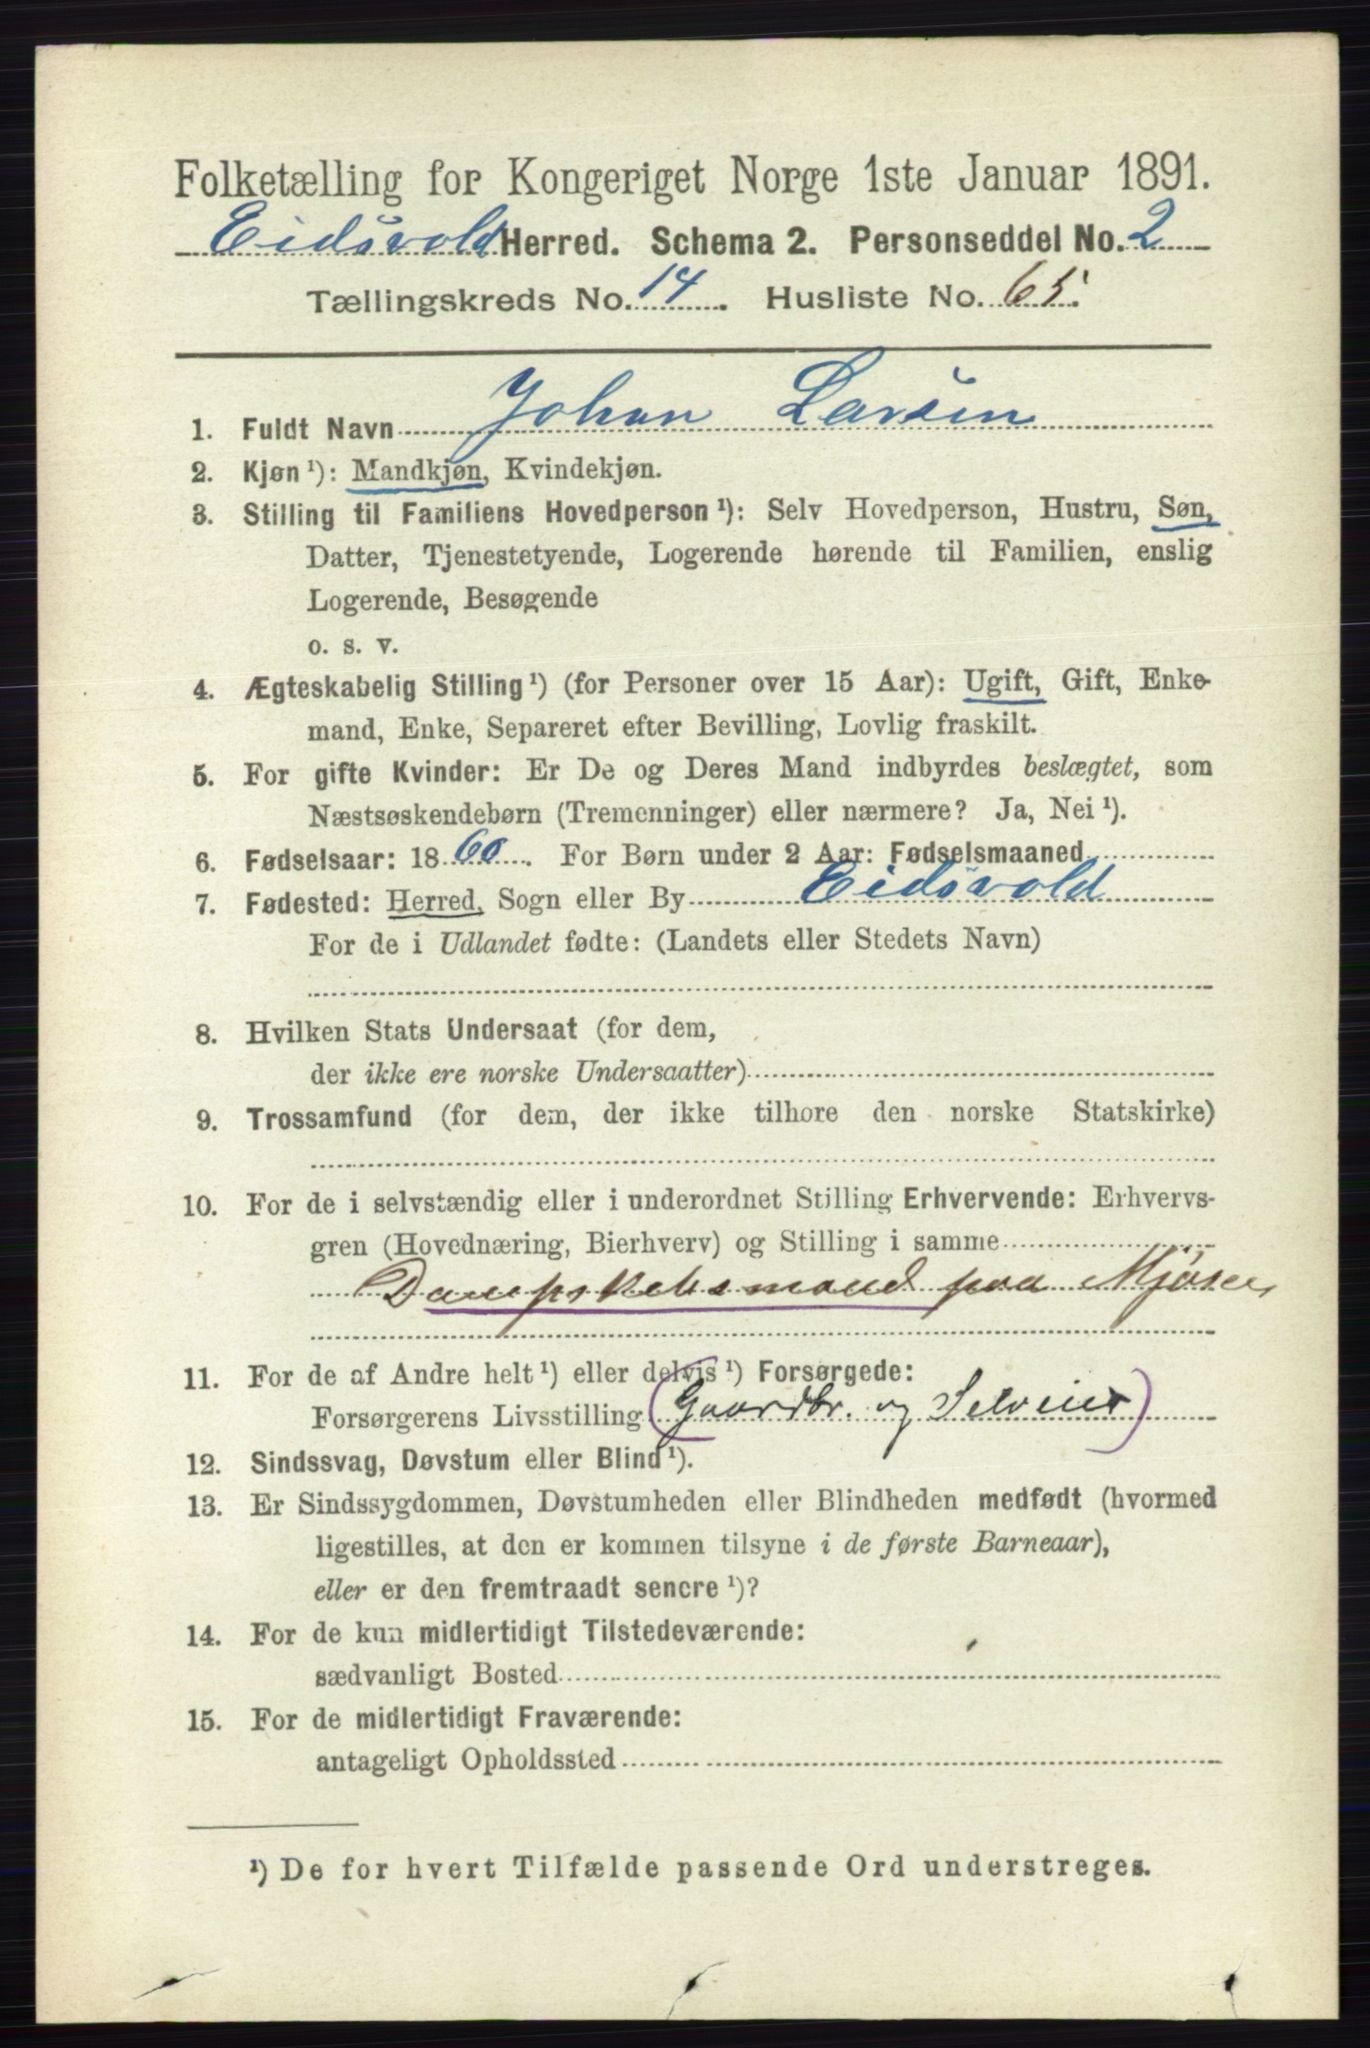 Folketælling for Kongeriget Norge 1ste Januar 1891.
Eidsvold Herred. Schema 2. Personseddel No. 2
Tællingskreds No. 14. Husliste No. 65.
1. Fuldt Navn Johan Larsen
2. Kjøn ¹): Mandkjøn, Kvindekjøn.
3. Stilling til Familiens Hovedperson ¹): Selv Hovedperson, Hustru, Søn,
Datter, Tjenestetyende, Logerende hørende til Familien, enslig
Logerende, Besøgende
o. s. v.
4. Ægteskabelig Stilling ¹) (for Personer over 15 Aar): Ugift, Gift, Enke-
mand, Enke, Separeret efter Bevilling, Lovlig fraskilt.
5. For gifte Kvinder: Er De og Deres Mand indbyrdes beslægtet, som
Næstsøskendebørn (Tremenninger) eller nærmere? Ja, Nei ¹).
6. Fødselsaar: 1860. For Børn under 2 Aar: Fødselsmaaned
7. Fødested: Herred, Sogn eller By Eidsvold
For de i Udlandet fødte: (Landets eller Stedets Navn)
8. Hvilken Stats Undersaat (for dem,
der ikke ere norske Undersaatter)
9. Trossamfund (for dem, der ikke tilhore den norske Statskirke)
10. For de i selvstændig eller i underordnet Stilling Erhvervende: Erhvervs-
gren (Hovednæring, Bierhverv) og Stilling i samme
Dampskibsmand paa Mjøsen
11. For de af Andre helt ¹) eller delvis ¹) Forsørgede:
Forsørgerens Livsstilling (Gaardbr. og Selveier)
12. Sindssvag, Døvstum eller Blind ¹).
13. Er Sindssygdommen, Døvstumheden eller Blindheden medfødt (hvormed
ligestilles, at den er kommen tilsyne i de første Barneaar),
eller er den fremtraadt senere ¹)?
14. For de kun midlertidigt Tilstedeværende:
sædvanligt Bosted
15. For de midlertidigt Fraværende:
antageligt Opholdssted
¹) De for hvert Tilfælde passende Ord understreges.